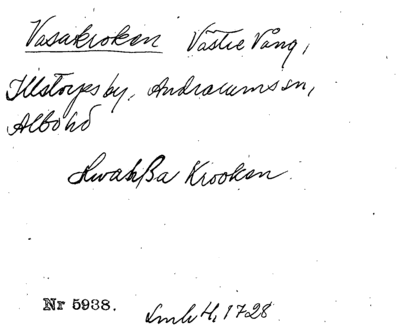 Vasakroken Västre Vång,
Illstorps by, Andrarums sn,
Albo hd
HwahßBa Krooken
Nr 5938.
Lmk H, 1728